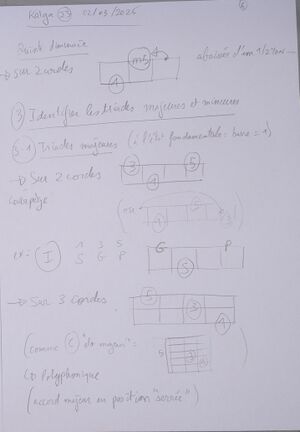 Kalga 27 02/03/2026
→ sur 2 cordes
m3
1
abaissée d'un 1/2 ton
③ Identifier les triades majeures et mineures
③-1 Triades majeures (à l'état fondamentale: basse = 1)
→ Sur 2 cordes
3 5
1
ex:- I 1 3 5
S G P
G P
S
→ Sur 3 cordes
5
3
1
(comme C "do majeur" =
5
3
↳ Polyphonique
(accord majeur en position "serrée")